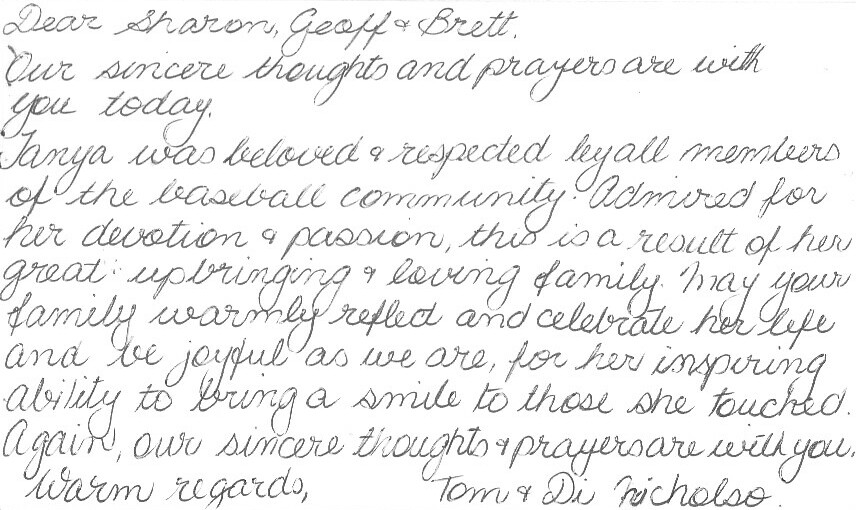 Dear Sharon, Geoff & Brett.
Our sincere thoughts and prayers are with
you today.
Tanya was beloved & respected by all members
of the baseball community. Admired for
her devotion & passion, this is a result of her
great upbringing & loving family. May your
family warmly reflect and celebrate her life
and be joyful as we are, for her inspiring
ability to bring a smile to those she touched.
Again, our sincere thoughts & prayers are with you.
Warm regards, Tom & Di Nicholso.